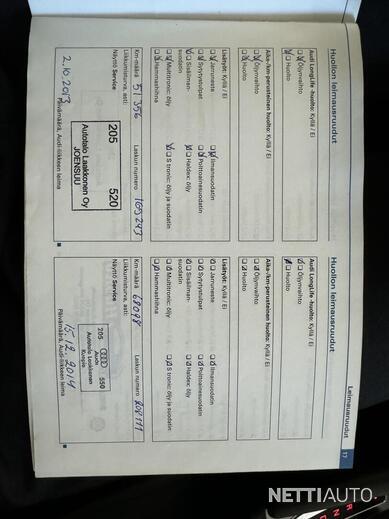 Leimausruudut 17
Huollon leimausruudut
Audi LongLife -huolto: Kyllä / Ei
Öljynvaihto
Huolto
Aika-/km-perusteinen huolto: Kyllä / Ei
Öljynvaihto
Huolto
Lisätyöt: Kyllä / Ei
Jarruneste
Ilmansuodatin
Sytytystulpat
Polttoainesuodatin
Sisäilman-
suodatin
Haldex: öljy
Multitronic: öljy
S tronic: öljy ja suodatin
Hammashihna
Km-määrä 51 356
Laskun numero
Liikkumisturva, asti:
Näyttö Service
205 520
Autotalo Laakkonen Oy
JOENSUU
2.10.2013
Päivämäärä, Audi-liikkeen leima
Huollon leimausruudut
Audi LongLife -huolto: Kyllä / Ei
Öljynvaihto
Huolto
Aika-/km-perusteinen huolto: Kyllä / Ei
Öljynvaihto
Huolto
Lisätyöt: Kyllä / Ei
Jarruneste
Ilmansuodatin
Sytytystulpat
Polttoainesuodatin
Sisäilman-
suodatin
Haldex: öljy
Multitronic: öljy
S tronic: öljy ja suodatin
Hammashihna
Km-määrä 68098
Laskun numero
Liikkumisturva, asti:
Näyttö Service
205 550
Audi
Autotalo Laakkonen
Kuopio
15.12.2014
Päivämäärä, Audi-liikkeen leima
NETTIAUTO